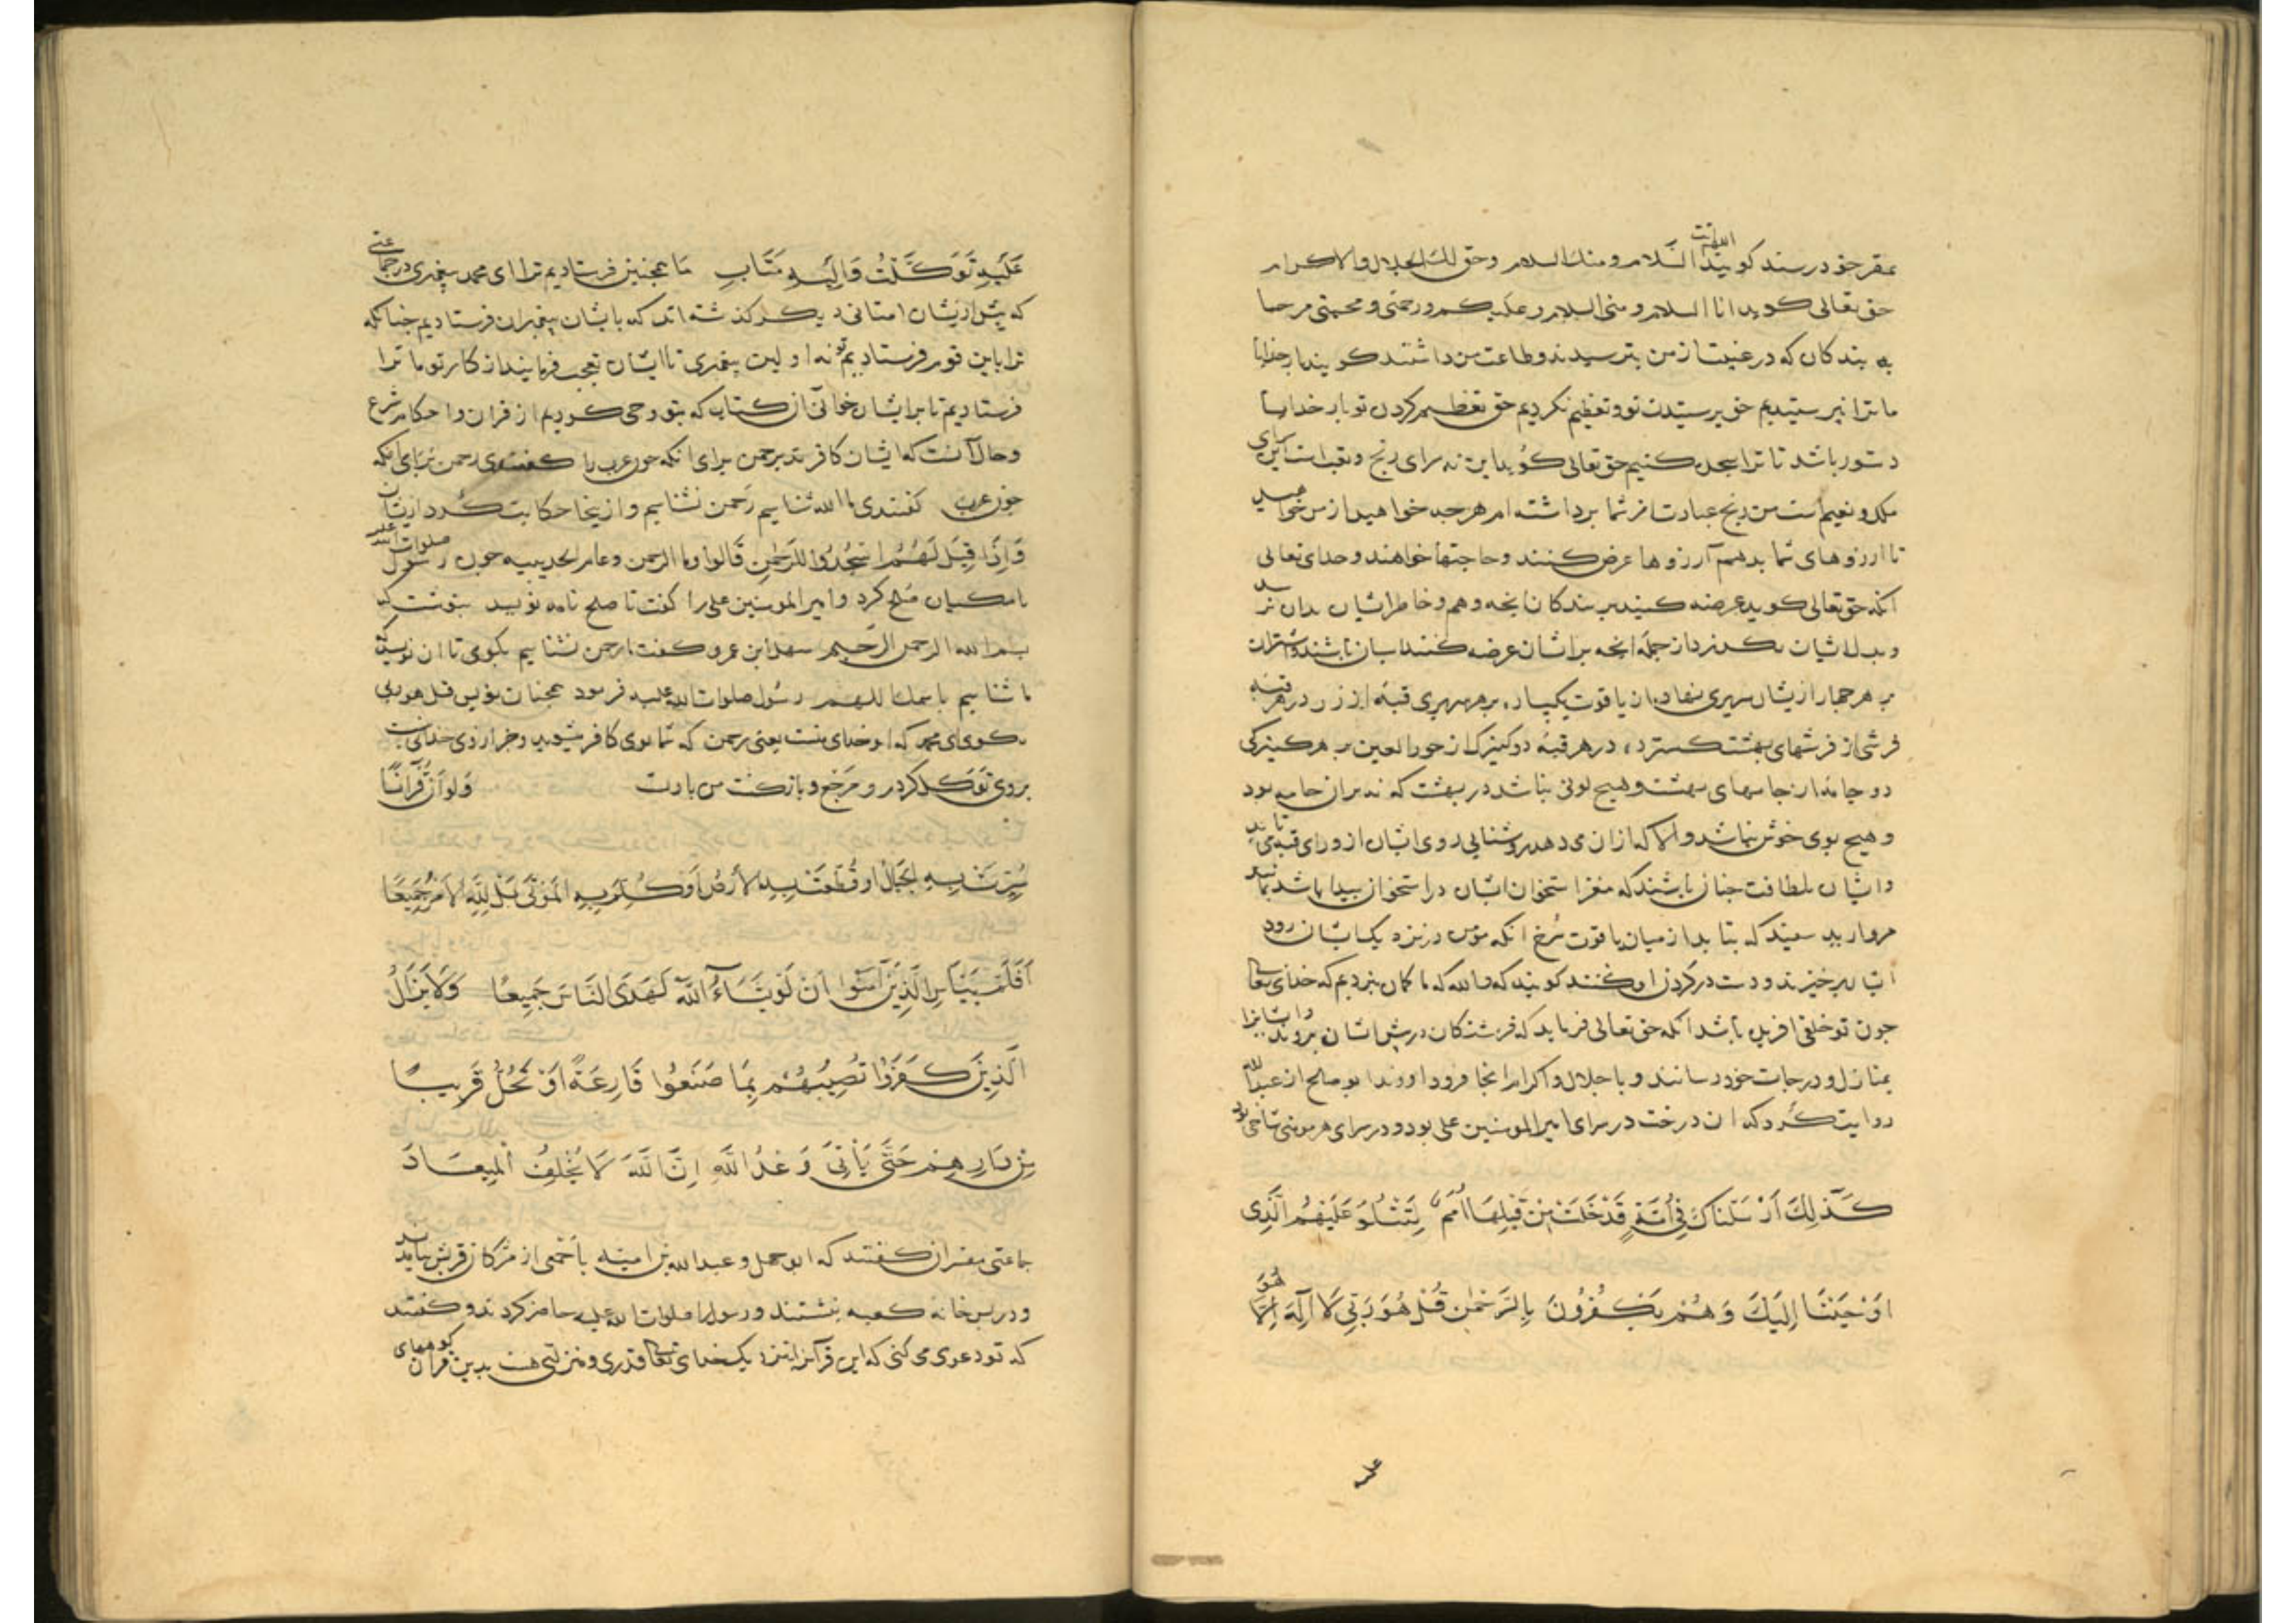 بمقر خود رسند گویند اللهم انت السلام ومنک السلام وحق لک الجلال والاکرام
حق تعالی کوید انا السلام و منی السلام وعلیکم ورحمتی و محبتی مرحبا
به بندکان که در غیبت از من بترسیدند وطاعت من داشتند کویند بار خدایا
ما ترا نپرستیدیم حق پرستیدن تو و تعظیم نکردیم حق تعظیم کردن تو بار خدایا
دستور باشد تا ترا سجده کنیم حق تعالی کوید این نه سرای رنج و تعب است این سرای
ملک و نعیم است من رنج عبادت از شما برداشته ام هرچه خواهید از من خواهید
تا ارزوهای شما بدهم آرزوها عرض کنند و حاجتها خواهند و خدای تعالی
انکه حق تعالی کوید عرضه کنید بر بندکان انچه وهم و خاطر ایشان بدان نرسد
و بدل ایشان نکذرد از جمله انچه بر ایشان عرضه کنند اسبان باشند و شتران
بر هر چهار ازیشان سریری نهاده از یاقوت یکپاره بر هر سریری قبه از زر در هر قبه
فرشی از فرشهای بهشت کسترده در هر قبه دو کنیزک از حور العین بر هر کنیزکی
دو جامه از جامهای بهشت و هیچ لونی نباشد در بهشت که نه بران جامه بود
و هیچ بوی خوش نباشد والا که ازان می دهد روشنایی روی ایشان از ورای قبه می تابد
و ایشان بلطافت چنان باشند که مغز استخوان ایشان در استخوان پیدا باشد مانند
مروارید سفید که بتابد از میان یاقوت سرخ انکه مؤمن در نزدیک ایشان رود
ایشان برخیزند و دست در کردن او کنند کویند که والله که ما کمان نبردیم که خدای تعالی
چون تو خلقی افریده باشد انکه حق تعالی فرماید که فرشتکان در پیش ایشان بروند و ایشانرا
بمنازل و درجات خود رسانند و باجلال و اکرام انجا فرود اورند ابو صالح از عبد الله
روایت کرد که ان درخت در سرای امیر المومنین علی بود و در سرای هر مومنی شاخی بود
كَذَلِكَ اَرْسَلْنَاكَ فِي اُمَّةٍ قَدْ خَلَتْ مِنْ قَبْلِهَا اُمَمٌ لِتَتْلُوَ عَلَيْهِمُ الَّذِی
اَوْحَيْنَا اِلَيْكَ وَهُمْ يَكْفُرُونَ بِالرَّحْمٰنِ قُلْ هُوَ رَبِّی لَا اِلٰهَ اِلَّا هُوَ
علیه
عَلَيْهِ تَوَكَّلْتُ وَاِلَيْهِ مَتَابِ ما همچنین فرستادیم ترا ای محمد بپیغمبری در جماعتی
که پیش ازیشان امتانی دیکر کذشته اند که بایشان پیغمبران فرستادیم چنانکه
ترا باین قوم فرستادیم تو نه اولین پیغمبری تا ایشان تعجب فرمایند از کار تو ما ترا
فرستادیم تا بر ایشان خوانی آن کتاب که بتو وحی کردیم از قران و احکام شرع
و حال آنست که ایشان کافرند برحمن برای انکه چون عرب را کفتندی رحمن برای انکه
چون عرب کفتندی ما الله شناسیم رحمن نشناسیم و ازینجا حکایت کرد ازیشان
وَاِذَا قِيلَ لَهُمُ اسْجُدُوا لِلرَّحْمٰنِ قَالُوا وما الرحمن وعام الحدیبیه چون رسول صلوات الله علیه
با مکیان صلح کرد و امیر المومنین علی را کفت تا صلح نامه نویسد بنوشت که
بسم الله الرحمن الرحیم سهل ابن عمرو کفت ما رحمن نشناسیم بکوی تا ان نویسد که
ما شناسیم باسمک اللهم رسول صلوات الله علیه فرمود همچنان نویس قل هو ربی
بکوی ای محمد که او خدای منست یعنی رحمن که شما بوی کافر میشوید و جز از وی خدای نیست
بر وی توکل کردم و مرجع و بازکشت من با اوست وَلَوْ اَنَّ قُرْآنًا
سُيِّرَتْ بِهِ الْجِبَالُ اَوْ قُطِّعَتْ بِهِ الْاَرْضُ اَوْ كُلِّمَ بِهِ الْمَوْتٰى بَلْ لِلّٰهِ الْاَمْرُ جَمِيعًا
اَفَلَمْ يَيْاَسِ الَّذِينَ آمَنُوا اَنْ لَوْ يَشَاءُ اللّٰهُ لَهَدَى النَّاسَ جَمِيعًا وَلَا يَزَالُ
الَّذِينَ كَفَرُوا تُصِيبُهُمْ بِمَا صَنَعُوا قَارِعَةٌ اَوْ تَحُلُّ قَرِيبًا
مِنْ دَارِهِمْ حَتّٰى يَاْتِیَ وَعْدُ اللّٰهِ اِنَّ اللّٰهَ لَا يُخْلِفُ الْمِيعَادَ
جماعتی مفسران کفتند که ابو جهل و عبدالله بن امیه با جمعی از مشرکان قریش بیامدند
و در پس خانه کعبه بنشستند و رسول را صلوات الله علیه حاضر کردند و کفتند
که تو دعوی می کنی که این قرآنرا نزدیک خدای تعالی قدری و منزلتی هست بدین قرآن کوههای